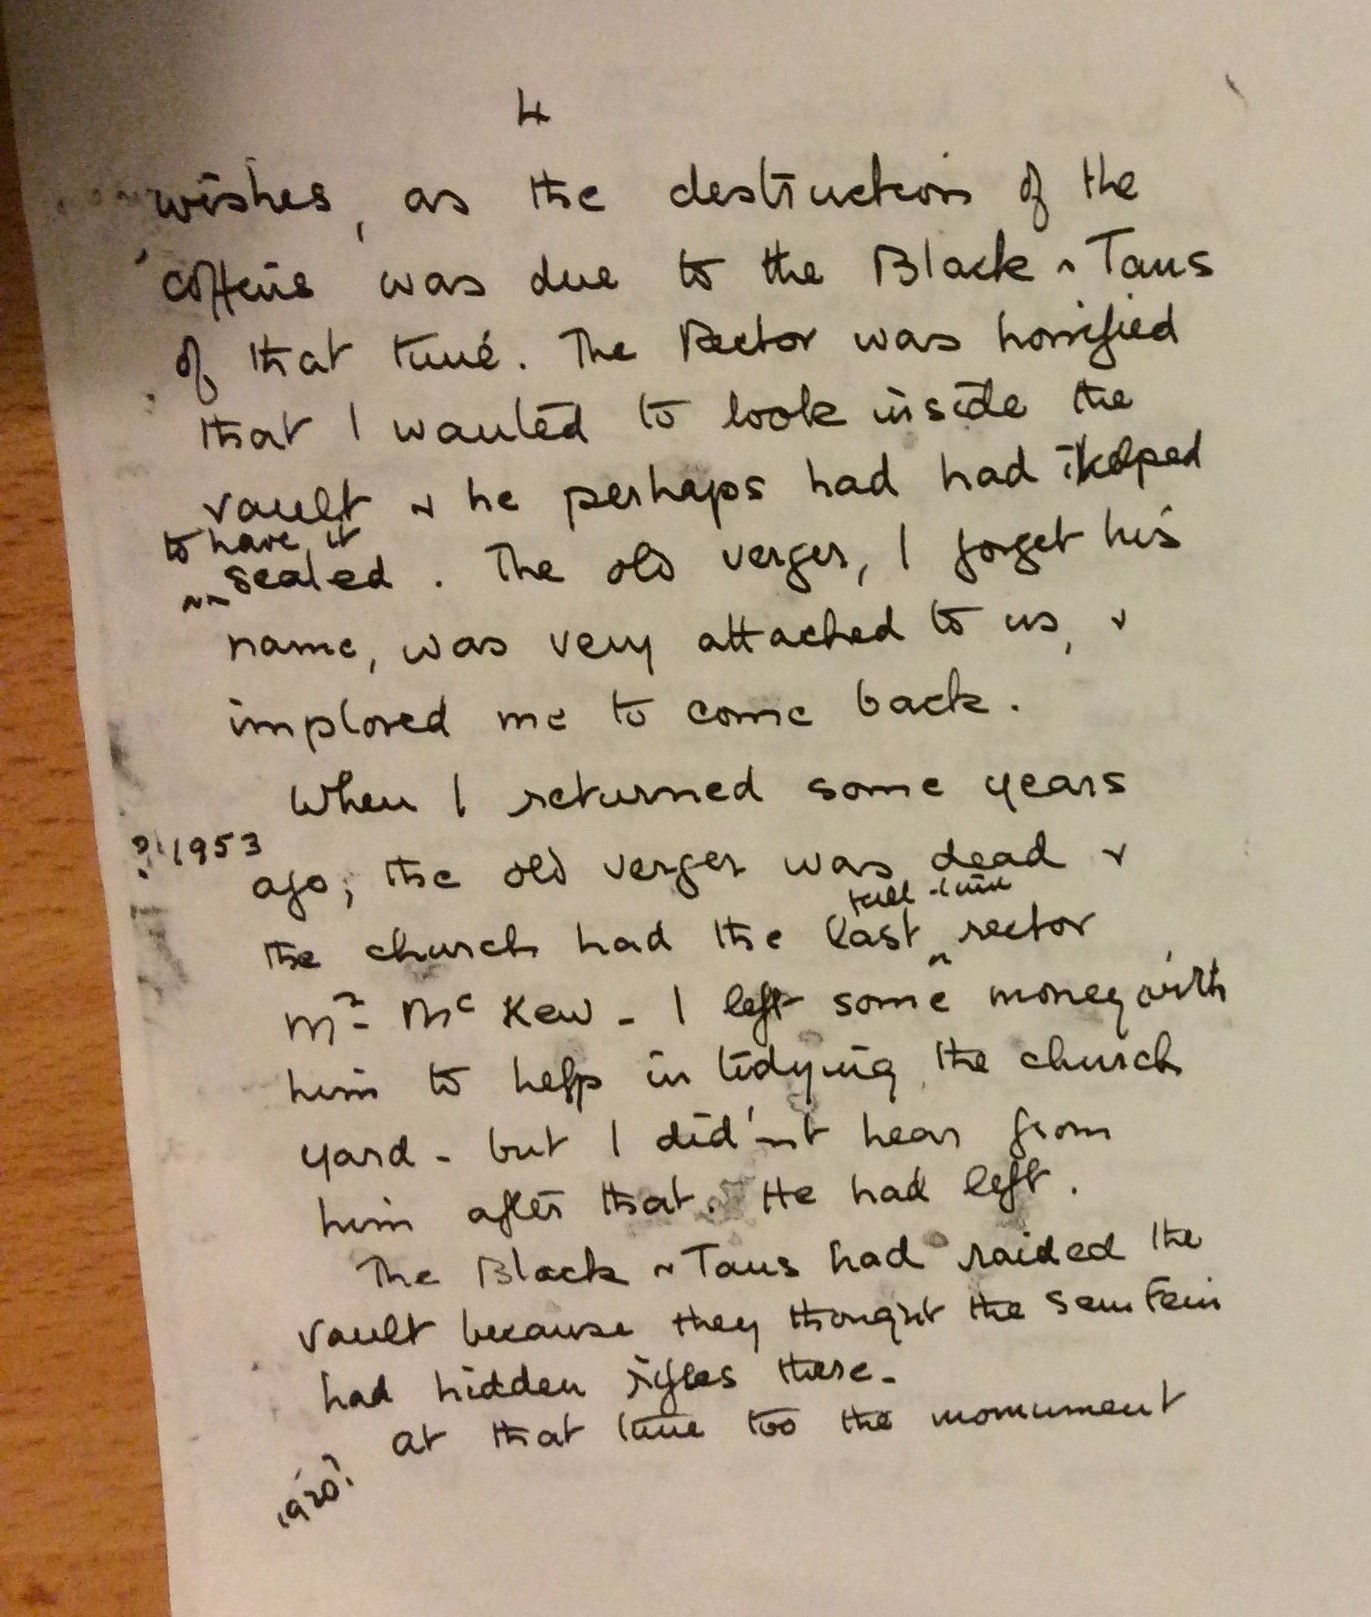 4
wishes, as the destruction of the
coffins was due to the Black & Tans
of that time. The Rector was horrified
that I wanted to look inside the
vault & he perhaps had had helped
to have it
sealed. The old verger, I forget his
name, was very attached to us, &
implored me to come back.
When I returned some years
? 1953
ago, the old verger was dead &
full-time
the church had the last rector
Mr Mc Kew - I left some money with
him to help in tidying the church
yard - but I did'nt hear from
him after that. He had left.
The Black & Tans had raided the
vault because they thought the Sein Fein
had hidden rifles there.
at that time too the monument
1920?